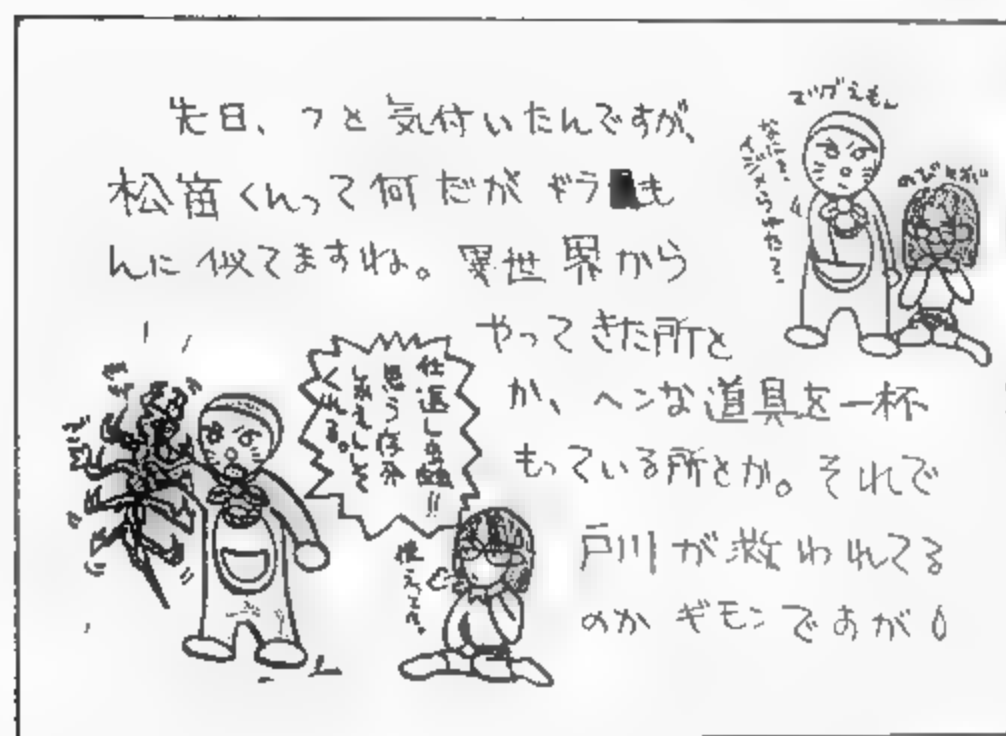 先日、フと気付いたんですが、
松笛くんって何だかドラ■も
んに似てますね。異世界から
やってきた所と
か、ヘンな道具を一杯
もっている所とか。それで
戸川が救われてる
のかギモンですが
マツブえもん
のびとがわ
仕返し虫籠!!
思う存分
しかえしして
くれる。
使えって。